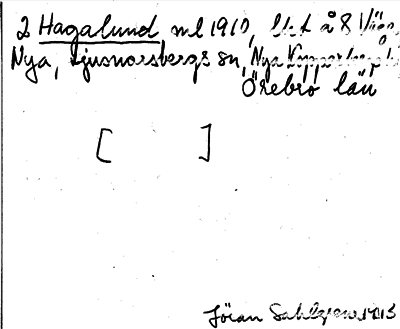 2 Hagalund, ml 1910, ltet å 8
Nya, Ljusnarsbergs sn, Nya Kopparbergs
Örebro län
[ ]
Jöran Sahlgren 1915